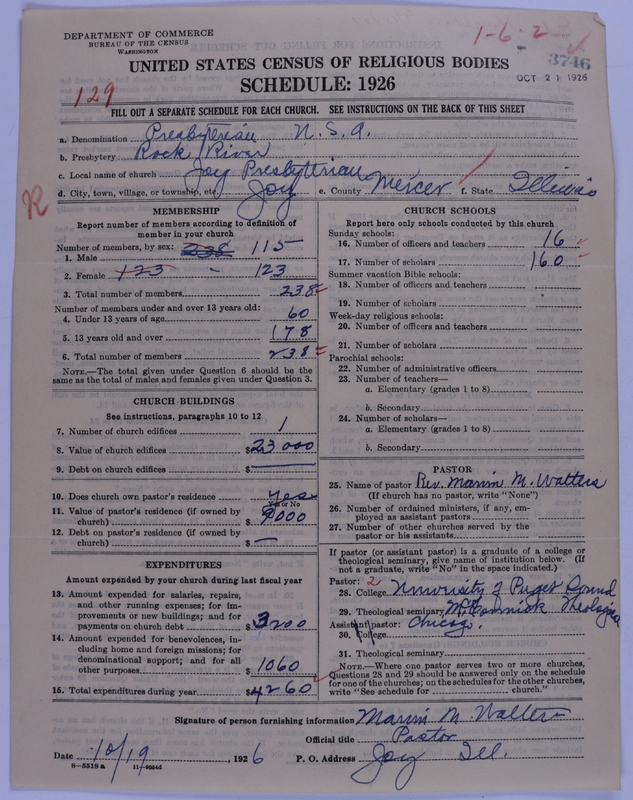 DEPARTMENT OF COMMERCE
BUREAU OF THE CENSUS
WASHINGTON
1-6-2
3746
OCT 21 1926
UNITED STATES CENSUS OF RELIGIOUS BODIES
SCHEDULE: 1926
129
FILL OUT A SEPARATE SCHEDULE FOR EACH CHURCH. SEE INSTRUCTIONS ON THE BACK OF THIS SHEET
a. Denomination Presbyterian U.S.A.
b. Presbytery Rock River
c. Local name of church Joy Presbyterian
d. City, town, village, or township, etc. Joy e. County Mercer f. State Illinois
R
MEMBERSHIP
Report number of members according to definition of member in your church
Number of members, by sex:
1. Male 238 115
2. Female 123 - 123
3. Total number of members 238
Number of members under and over 13 years old:
4. Under 13 years of age 60
5. 13 years old and over 178
6. Total number of members 238
NOTE.—The total given under Question 6 should be the same as the total of males and females given under Question 3.
CHURCH BUILDINGS
See instructions, paragraphs 10 to 12
7. Number of church edifices 1
8. Value of church edifices $23000
9. Debt on church edifices $
10. Does church own pastor's residence Yes
Yes or No
11. Value of pastor's residence (if owned by church) $ 000
12. Debt on pastor's residence (if owned by church) $ —
EXPENDITURES
Amount expended by your church during last fiscal year
13. Amount expended for salaries, repairs, and other running expenses; for improvements or new buildings; and for payments on church debt $3200
14. Amount expended for benevolences, including home and foreign missions; for denominational support; and for all other purposes $1060
15. Total expenditures during year $4260
CHURCH SCHOOLS
Report here only schools conducted by this church
Sunday schools:
16. Number of officers and teachers 16
17. Number of scholars 160
Summer vacation Bible schools:
18. Number of officers and teachers
19. Number of scholars
Week-day religious schools:
20. Number of officers and teachers
21. Number of scholars
Parochial schools:
22. Number of administrative officers
23. Number of teachers—
a. Elementary (grades 1 to 8)
b. Secondary
24. Number of scholars—
a. Elementary (grades 1 to 8)
b. Secondary
PASTOR
25. Name of pastor Rev. Marvin M. Walters
(If church has no pastor, write "None")
26. Number of ordained ministers, if any, employed as assistant pastors
27. Number of other churches served by the pastor or his assistants
If pastor (or assistant pastor) is a graduate of a college or theological seminary, give name of institution below. (If not a graduate, write "No" in the space indicated.)
Pastor: 2
28. College University of Puget Sound
29. Theological seminary McCormick Theological
Assistant pastor: Chicago.
30. College
31. Theological seminary
NOTE.—Where one pastor serves two or more churches, Questions 28 and 29 should be answered only on the schedule for one of the churches; on the schedules for the other churches, write "See schedule for church."
Signature of person furnishing information Marvin M. Walters
Official title Pastor
Date 10/19, 1926 P. O. Address Joy Ill.
8—5518 a 11—9054d